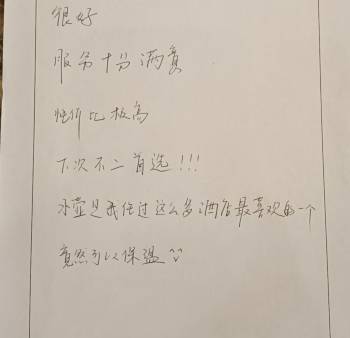 很好
服务十分满意
性价比极高
下次不二首选!!!
水壶是我住过这么多酒店最喜欢的一个
竟然可以保温